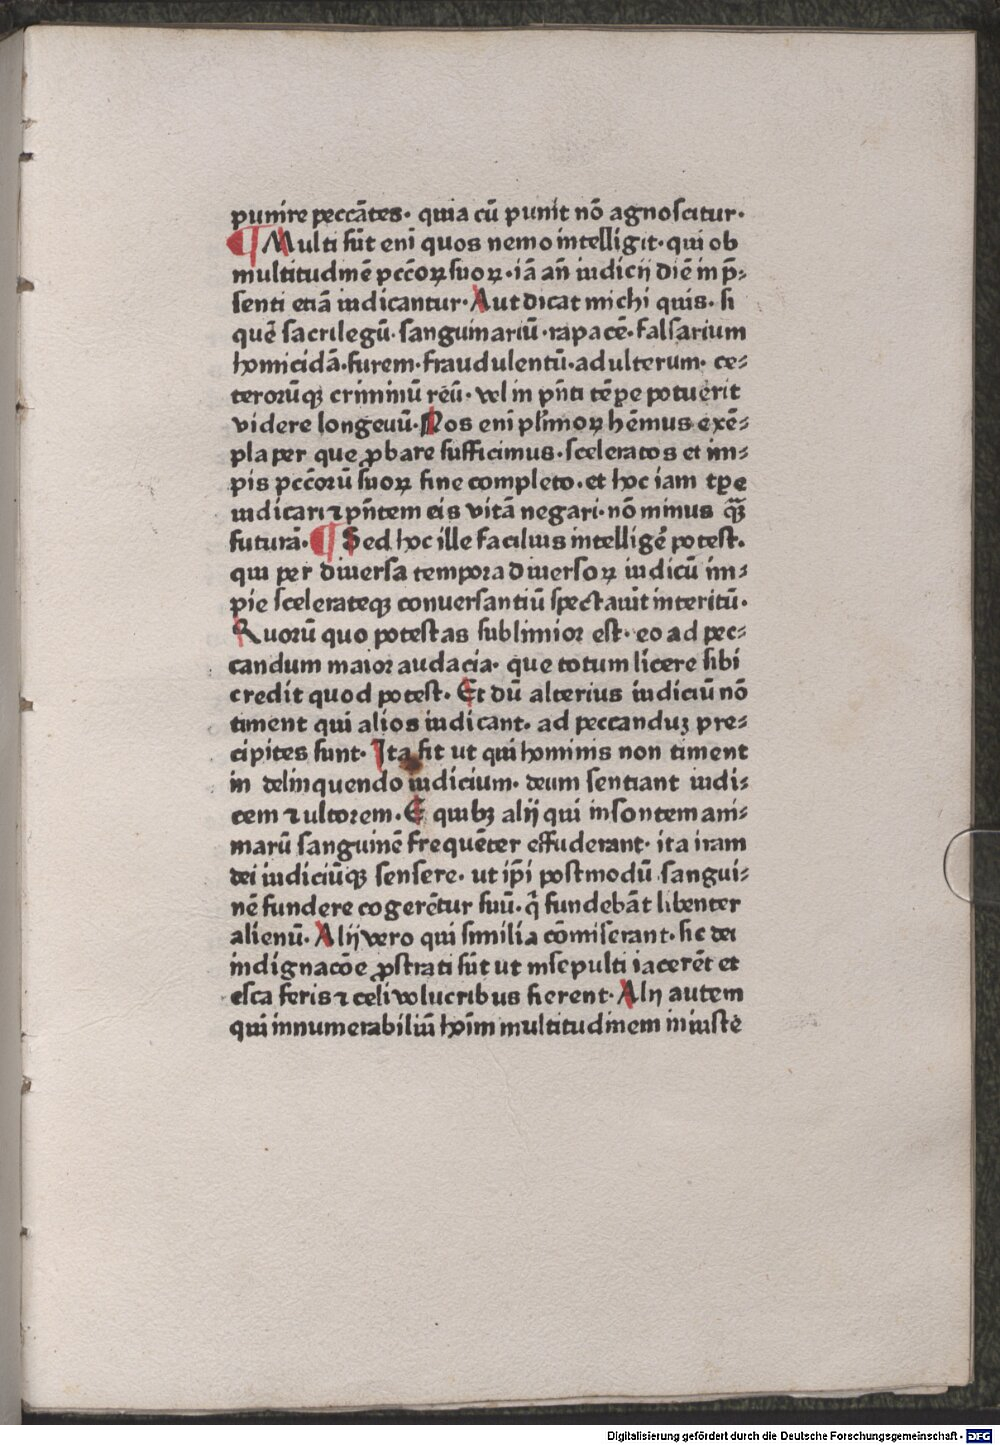 punire peccātes· quia cū punit nō agnoscitur·
¶ Multi sūt eni quos nemo intelligit· qui ob
multitudinē pccōꝝ suoꝝ· iā añ iudicij diē in p̄⸗
senti etiā iudicantur· Aut dicat michi quis· si
quē sacrilegū· sanguinariū· rapacē· falsarium
homicidā· furem· fraudulentū· adulterum· ce⸗
terorūqꝫ criminū reū· vel in pn̄ti tēpe potuerit
videre longeuū· Nos eni plīmoꝝ hēmus exē⸗
pla per que ꝓbare sufficimus· sceleratos et im⸗
pis pccōrū suoꝝ fine completo· et hoc iam tꝑe
iudicari ⁊ pn̄tem eis vitā negari· nō minus qᷓꝫ
futurā· ¶ Sed hoc ille facilius intelligē potest·
qui per diuersa tempora diuersoꝝ iudicū im⸗
pie scelerateqꝫ conuersantiū spectauit interitū·
Quorū quo potestas sublimior est· eo ad pec⸗
candum maior audacia· que totum licere sibi
credit quod potest· Et dū alterius iudiciū nō
timent qui alios iudicant· ad peccanduꝫ pre⸗
cipites sunt· Ita fit ut qui hominis non timent
in delinquendo iudicium· deum sentiant iudi⸗
cem ⁊ ultorem· E quibꝫ alij qui insontem ani⸗
marū sanguinē frequēter effuderant· ita iram
dei iudiciūqꝫ sensere· ut ip̄i postmodū sangui⸗
nē fundere cogerētur suū· q̄ fundebāt libenter
alienū· Alij vero qui similia cōmiserant· sic dei
indignacōe ꝓstrati sūt ut insepulti iacerēt et
esca feris ⁊ celi volucribus fierent· Alij autem
qui innumerabiliū hoīm multitudinem iniuste
Digitalisierung gefördert durch die Deutsche Forschungsgemeinschaft · DFG